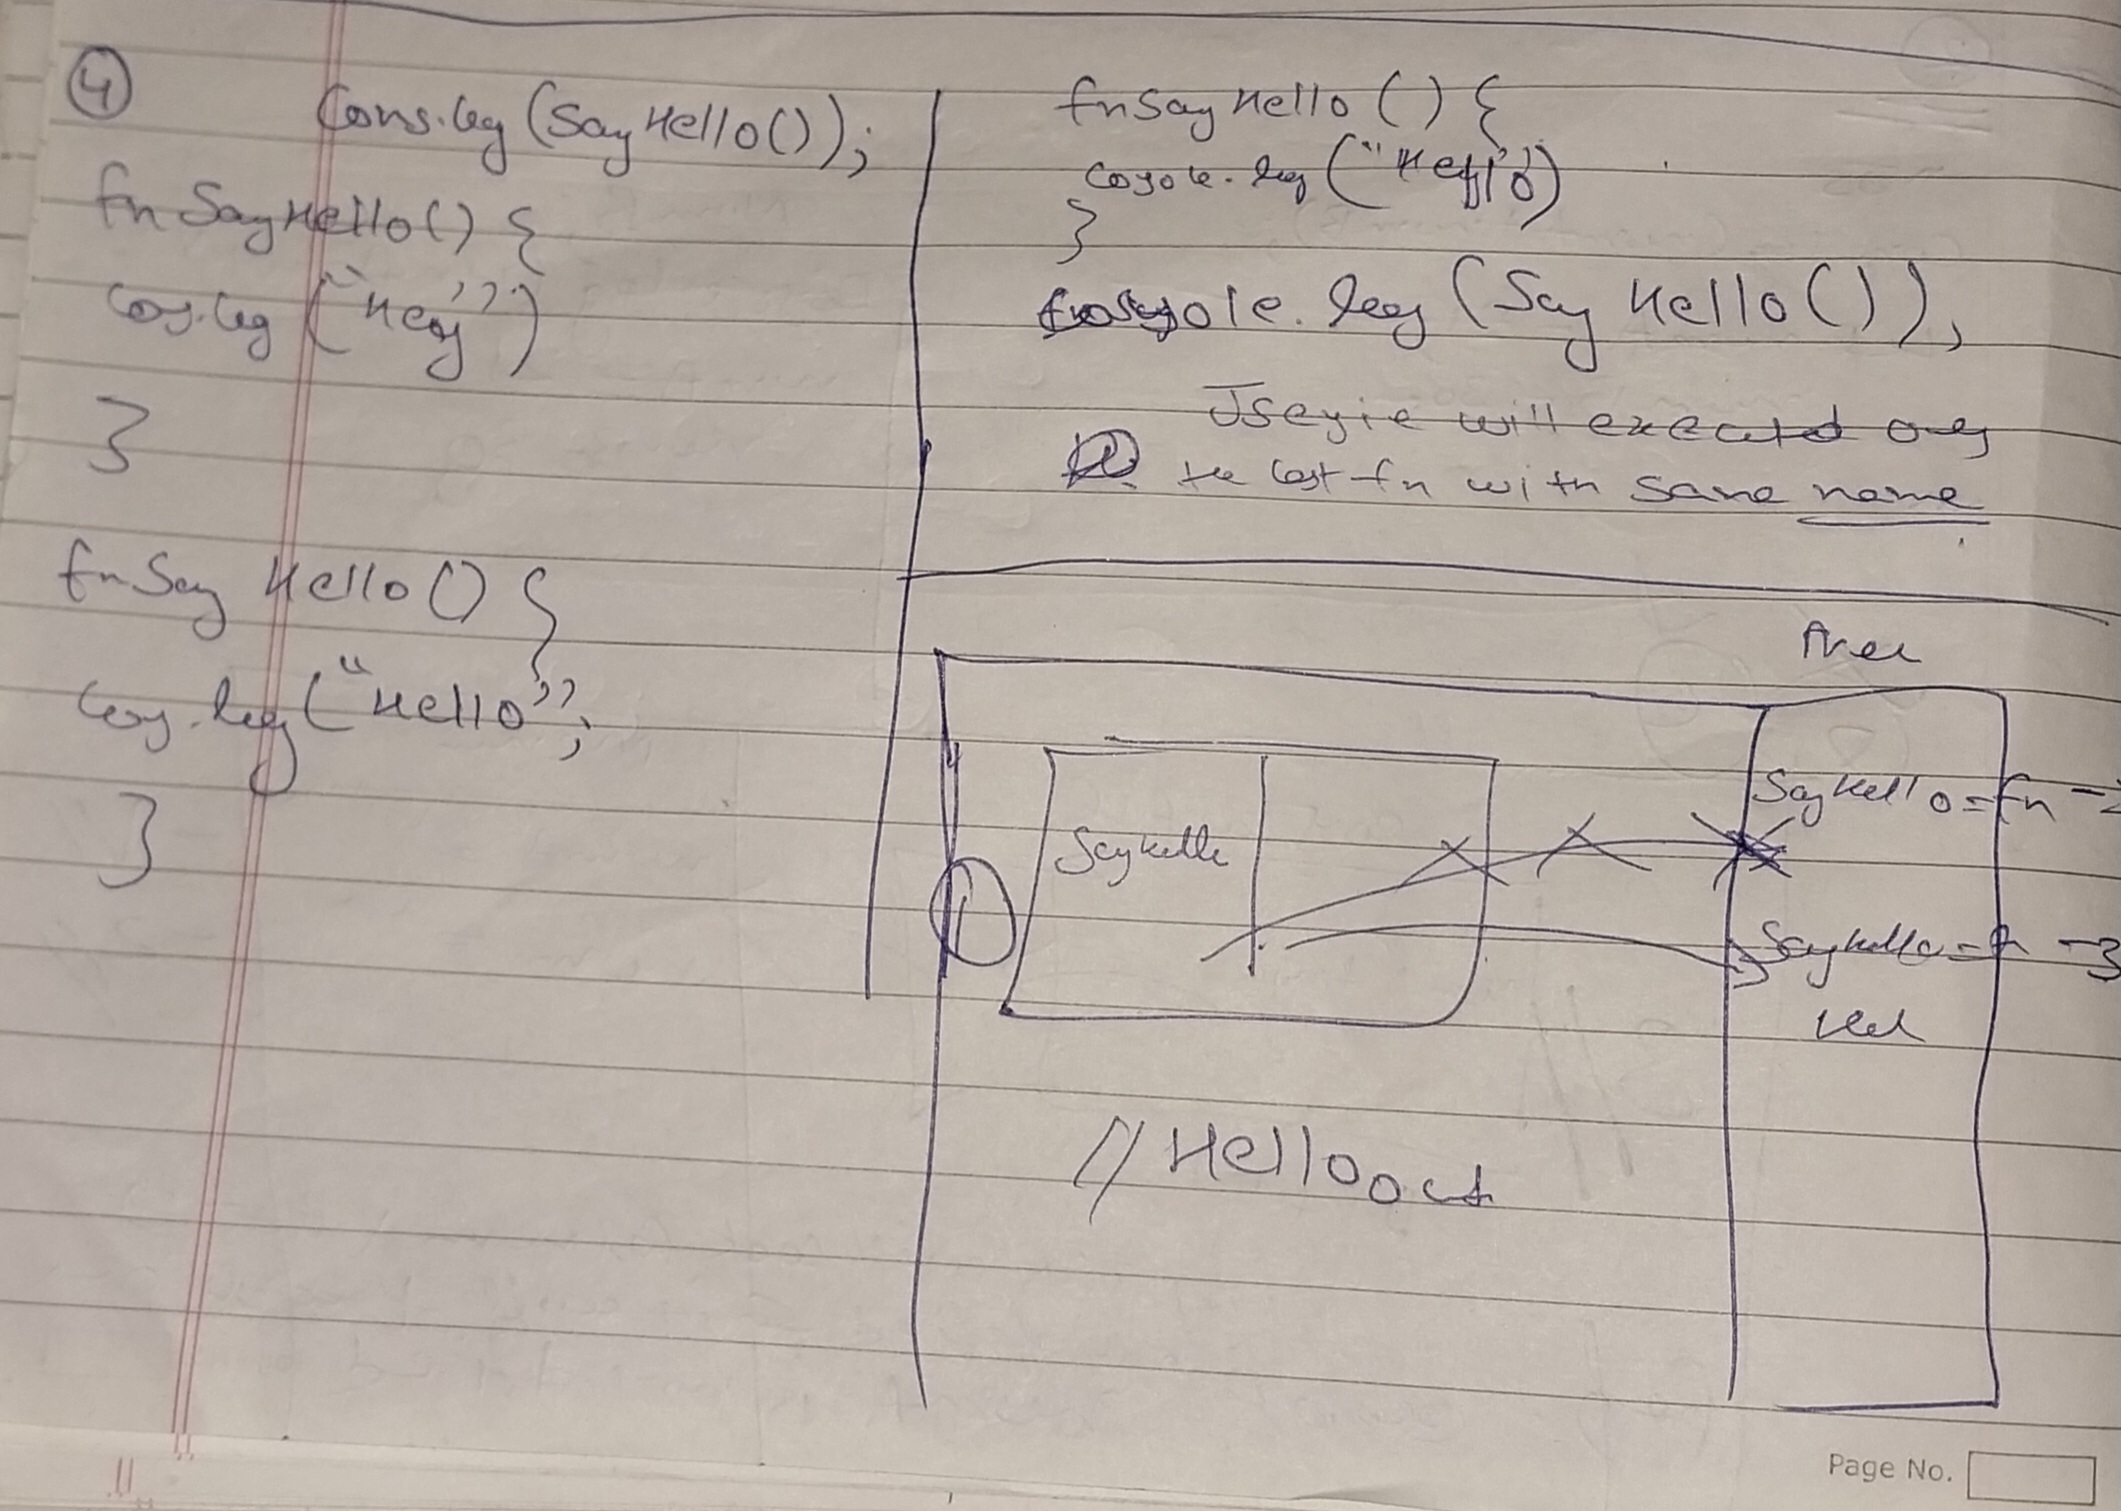 4
Cons.log (Say Hello());
fn Say Hello() {
Cos.log ("Hey")
}
fn Say Hello () {
Cos.log ("Hello";
}
fn Say Hello () {
log ("Hello")
}
ole.log (Say Hello()),
will executed only
the last fn with same name
SayHello
1
SayHello = fn -2
SayHello = fn -3
// Hello out
Page No.